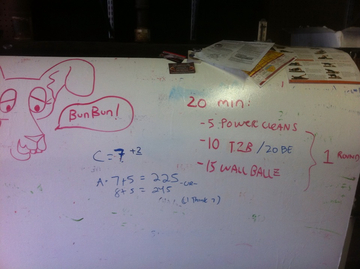 BunBun!
20 min:
-5 POWER CLEANS
-10 T2B /20 BE
-15 WALL BALLE
1 ROUND
C = 7 +3
A. 7+5 = 225
8+3 = 245
(I think?)